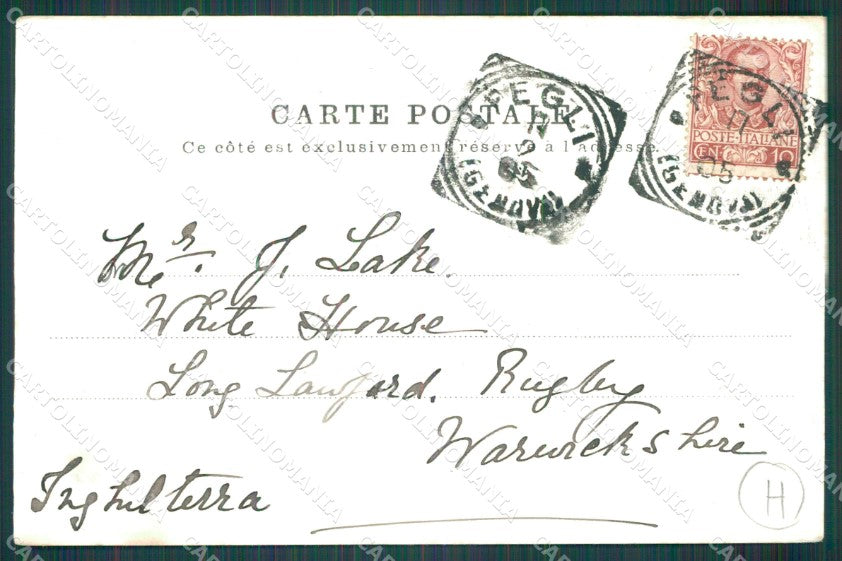 CARTE POSTALE
Ce côté est exclusivement réservé à l'adresse.
PEGLI
(GENOVA)
PEGLI
05
(GENOVA)
POSTE·ITALIANE
CEN 10
Mr. J. Lake.
White House
Long Lawford. Rugby
Warwickshire
Inghilterra
H
CARTOLINOMANIA